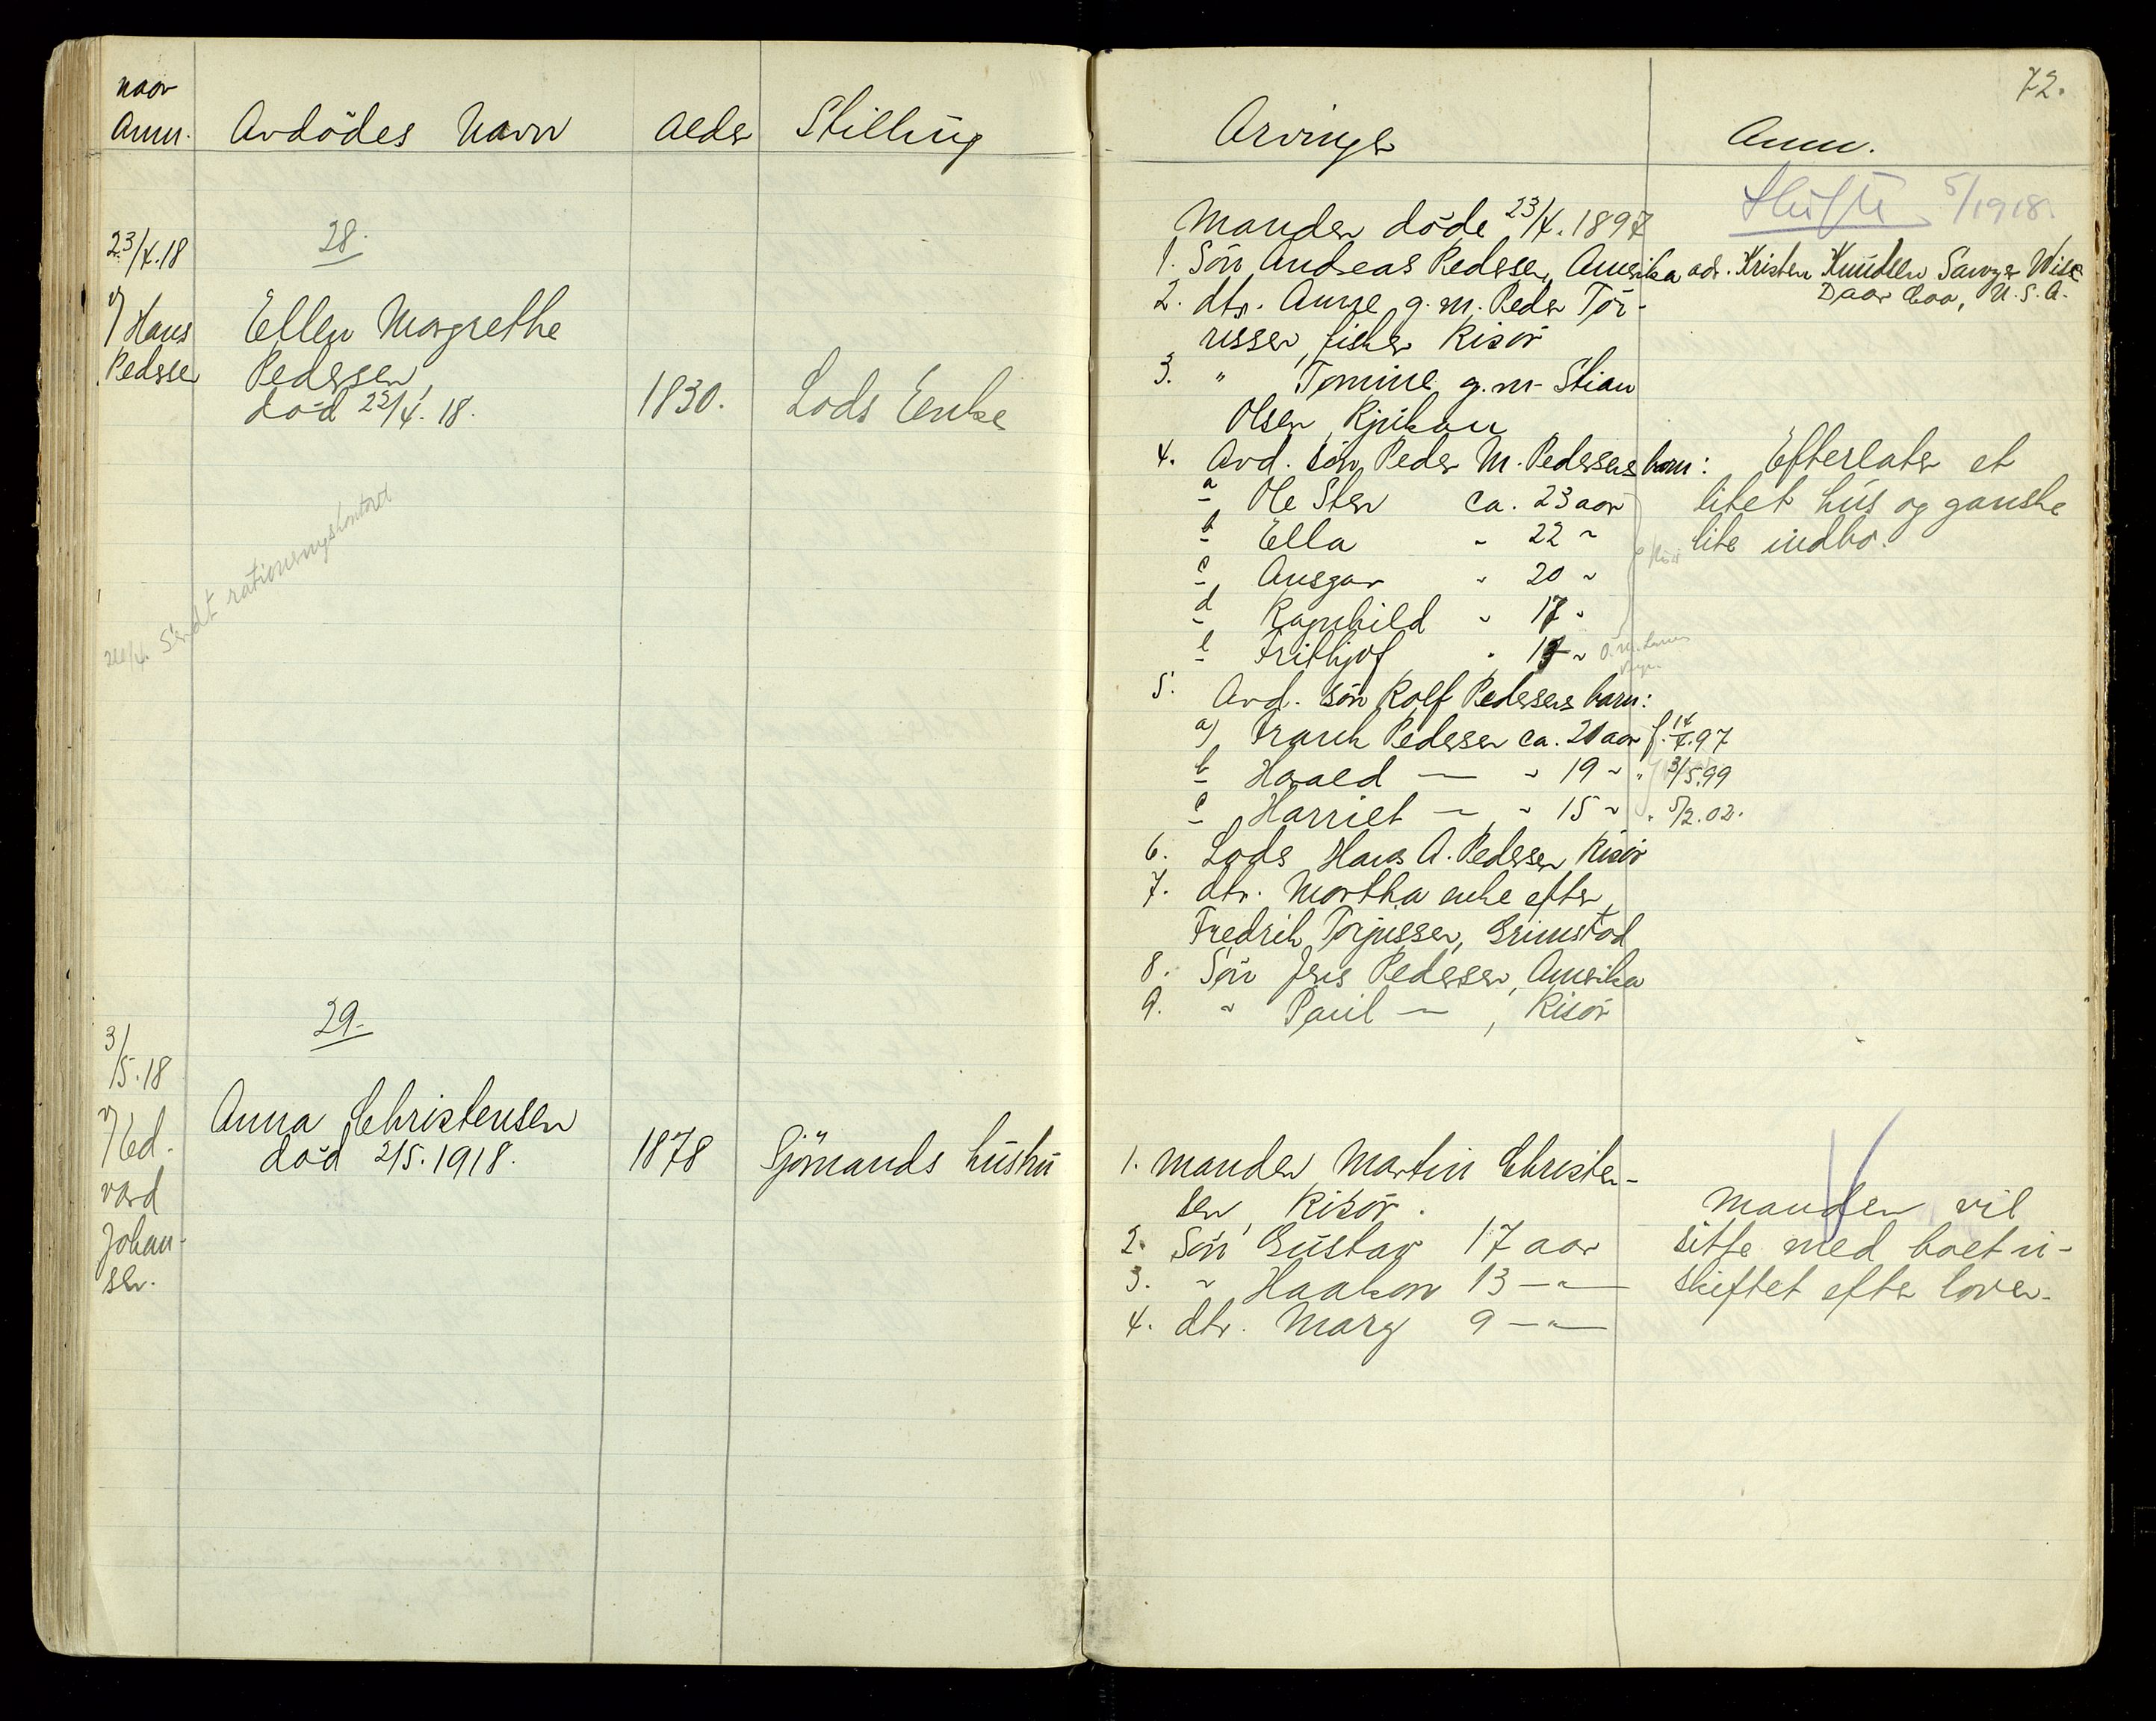 naar
Anm.
Avdödes Navn
Alder
Stilling
28.
23/4.18
v/ Hans
Pedersen
Ellen Margrethe
Pedersen,
död 23/4.18.
1830.
Lods Enke
24/4. Sendt rationeringskontoret
29.
3/5.18
v/ Ed-
vard
Johan-
sen.
Anna Christensen
död 2/5.1918.
1878
Sjömands hustru
72.
Arvinger
Anm.
Skifte 5/1918.
Manden döde 23/4.1897
1. Sön Andreas Pedersen, Amerika adr. Kristen Knudsen Sawyer Wise
Daar Coo, U.S.A.
2. dtr. Anne g.m. Peder Tör-
risen, fisker Risör
3. " Tomine g.m. Stian
Olsen, Rjukan
4. Avd. sön Peder M. Pedersens barn:
a Ole Sten ca. 23 aar
b Ella " 22 "
c Ansgar " 20 "
d Ragnhild " 17 "
e Frithjof " 13 "
Efterlater et
litet hus og ganske
lite indbo.
5. Avd. sön Rolf Pedersens barn:
a) Frank Pedersen ca. 20 aar f. 14/4.97
b Harald — " 19 " " 3/5.99
c Harriet — " 15 " " 5/2.02.
6. Lods Hans A. Pedersen Risör
7. dtr. Martha enke efter
Fredrik Torjussen, Grimstad
8. Sön Jens Pedersen, Amerika
9. " Paul — , Risör
1. manden Martin Christen-
sen, Risör.
2. Sön Gustav 17 aar
3. " Haakon 13 — " —
4. dtr. Mary 9 — " —
Manden vil
sitte med boet u-
skiftet efter loven.